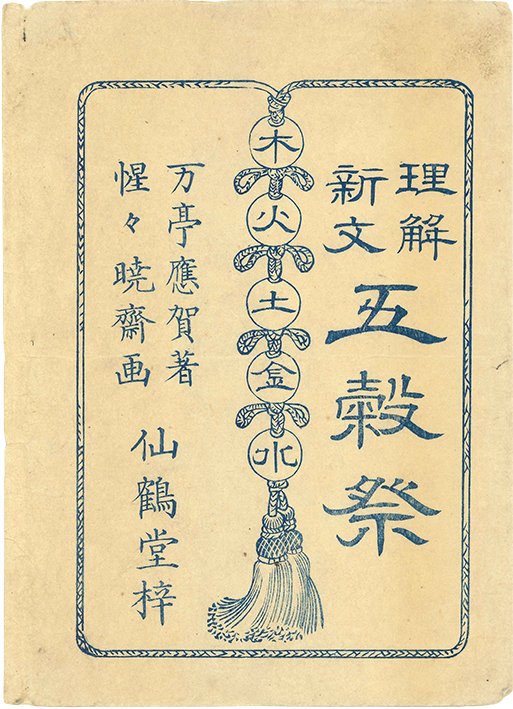 理解
新文
五穀祭
木
火
土
金
水
万亭應賀著
惺々暁齋画
仙鶴堂梓